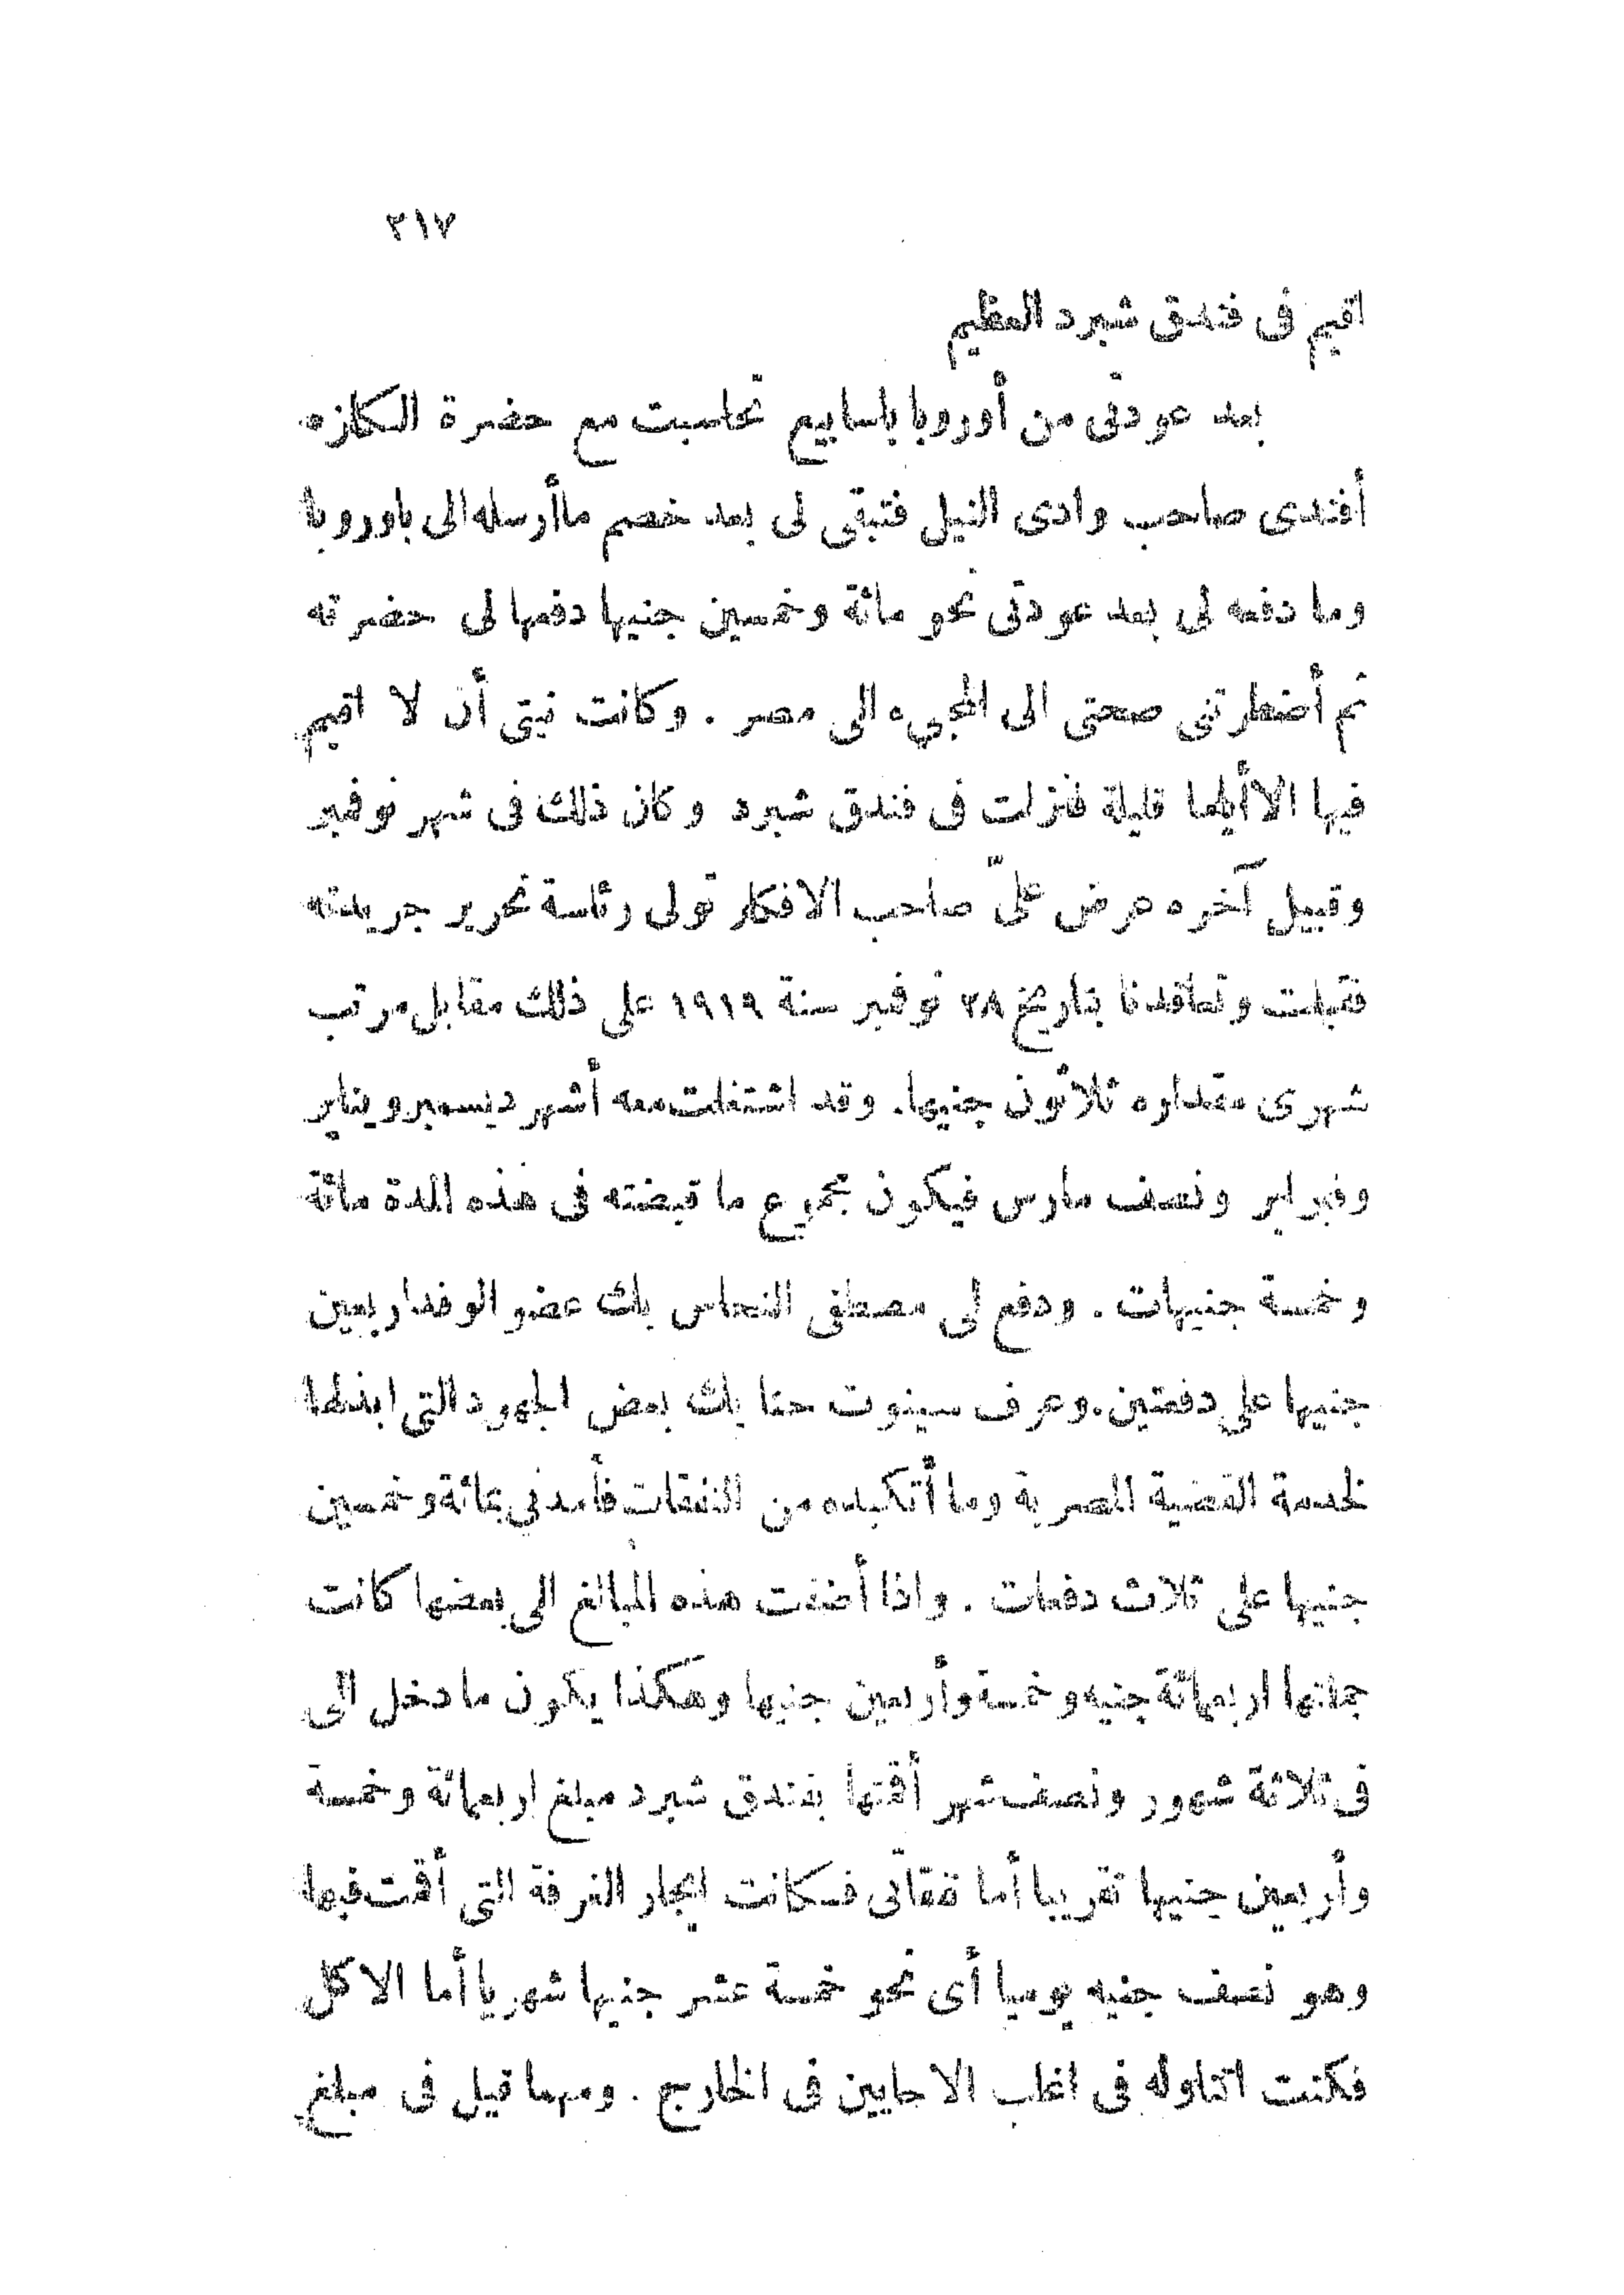 ٢١٧
اقيم فى فندق شبرد العظيم
بعد عودتى من أوروبا باسابيع تحاسبت مع حضرة الكلزه
أفندى صاحب وادى النيل فتبقى لى بعد خصم ماأرسله الى باوروبا
وما دفعه لى بعد عودتى نحو مائة وخمسين جنيها دفعها لى حضرته
ثم أضطرتنى صحتى الى المجيء الى مصر . وكانت نيتى أن لا اقيم
فيها الا أياما قليلة فنزلت فى فندق شبرد وكان ذلك فى شهر نوفمبر
وقبيل آخره عرض علىّ صاحب الافكار تولى رئاسة تحرير جريدته
فقبلت وتعاقدنا بتاريخ ٢٨ نوفمبر سنة ١٩١٩ على ذلك مقابل مرتب
شهرى مقداره ثلاثون جنيها. وقد اشتغلت معه أشهر ديسمبر ويناير
وفبراير ونصف مارس فيكون مجموع ما قبضته فى هذه المدة مائة
وخمسة جنيهات . ودفع لى مصطفى النحاس بك عضو الوفد اربعين
جنيها على دفعتين . وعرف سينوت حنا بك بعض الجهود التى ابذلها
لخدمة القضية المصرية وما أتكبده من النفقات فأمدنى بمائة وخمسين
جنيها على ثلاث دفعات . واذا أضفت هذه المبالغ الى بعضها كانت
جملتها اربعمائة جنيه وخمسة وأربعين جنيها وهكذا يكون ما دخل الى
فى ثلاثة شهور ونصف شهر أقمتها بفندق شبرد مبلغ اربعمائة وخمسة
وأربعين جنيها تقريبا أما نفقاتى فكانت ايجار الغرفة التى أقمت فيها
وهو نصف جنيه يوميا أى نحو خمسة عشر جنيها شهريا أما الاكل
فكنت اتناوله فى اغلب الاحايين فى الخارج . ومهما قيل فى مبلغ